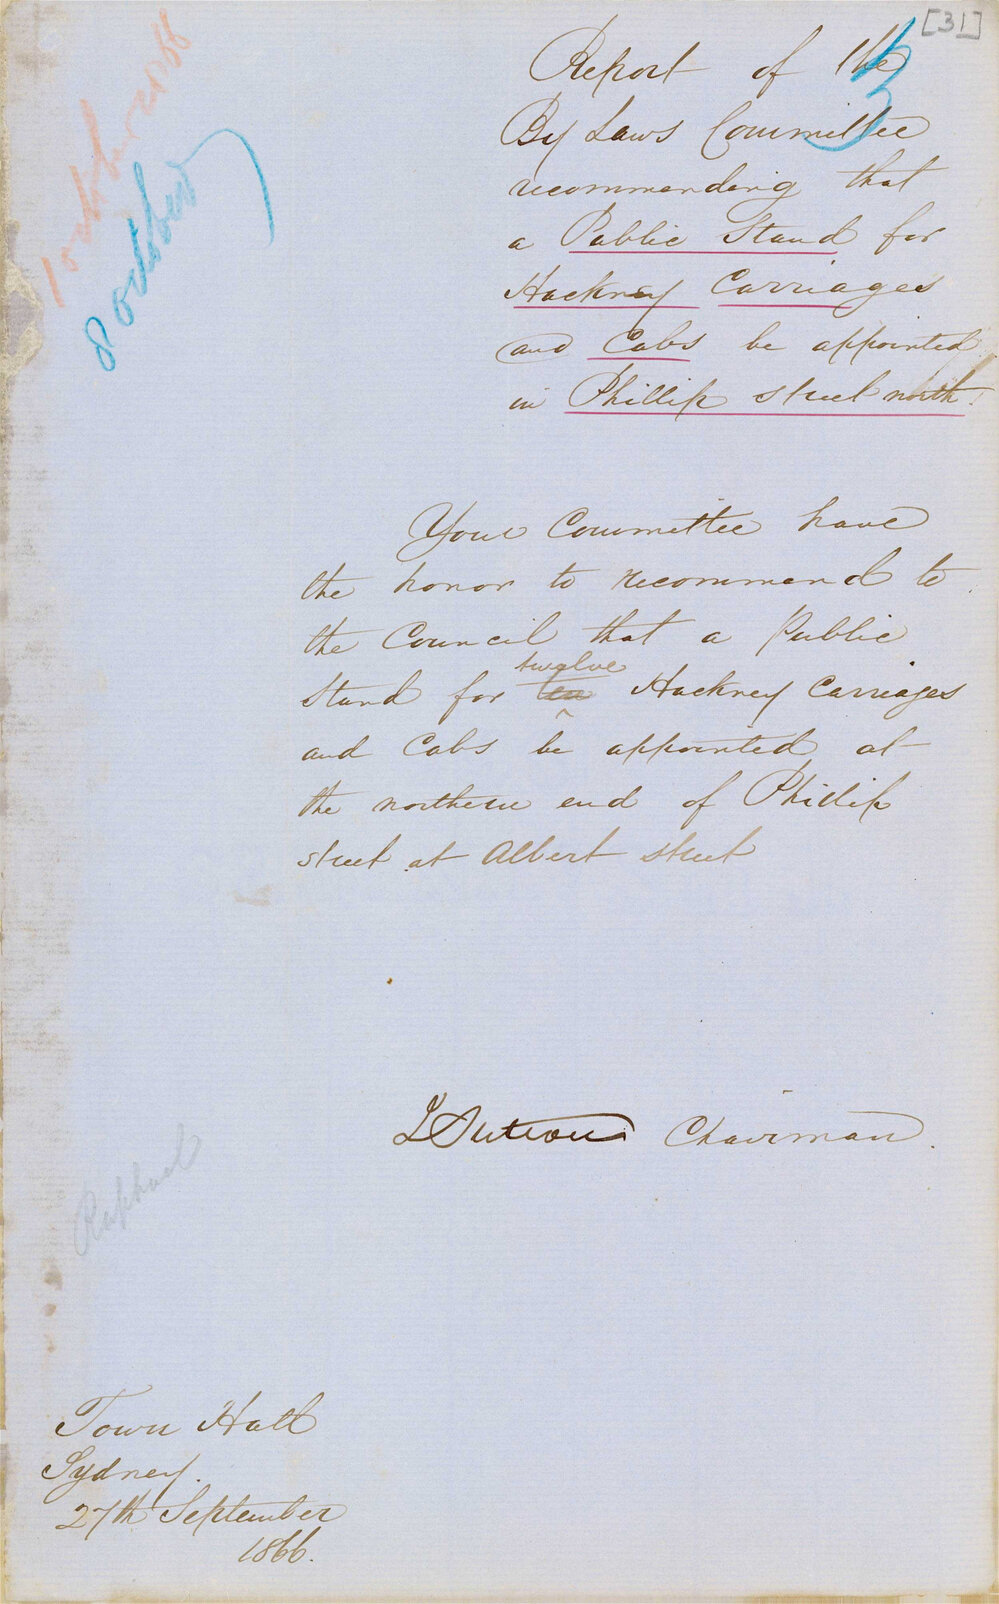 [31]
3
1 october 1866
8 October
Report of the
By Laws Committee
recommending that
a Public Stand for
Hackney Carriages
and Cabs be appointed
in Phillip street north.
Your Committee have
the honor to recommend to
the Council that a Public
twelve
Stand for ten Hackney Carriages
and Cabs be appointed at
the northern end of Phillip
street at Albert street
Sutton Chairman.
Raphael
Town Hall
Sydney.
27th September
1866.